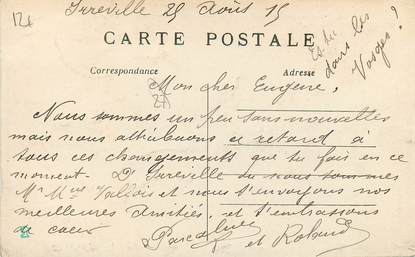 Irreville 25 Août 15
CARTE POSTALE
Correspondance
Adresse
Es-tu
dans les
Vosges ?
Mon cher Eugène,
27
Nous sommes un peu sans nouvelles
mais nous attribuons ce retard à
tous ces changements que tu fais en ce
moment. D'Irreville où nous sommes
Mr Mme Vallois et nous t'envoyons nos
meilleures amitiés, et t'embrassons
de cœur
et Roland